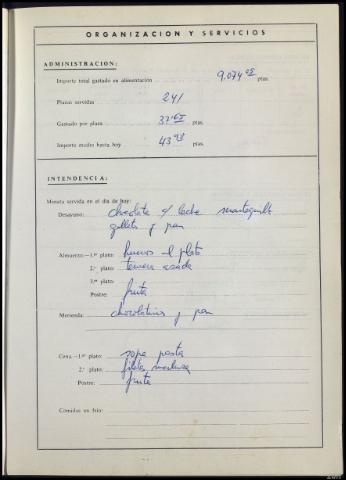 ORGANIZACION Y SERVICIOS
ADMINISTRACION:
Importe total gastado en alimentación 9.074 ptas.
Plazas servidas 241
Gastado por plaza 37'65 ptas.
Importe medio hasta hoy 43 ptas.
INTENDENCIA:
Minuta servida en el día de hoy:
Desayuno: chocolate c/ leche mantequilla
galletas y pan
Almuerzo.—1.er plato: huevos al plato
2.º plato: ternera asada
3.er plato:
Postre: fruta
Merienda: chocolatinas y pan
Cena.—1.er plato: sopa pasta
2.º plato: filetes merluza
Postre: fruta
Comidas en frío: